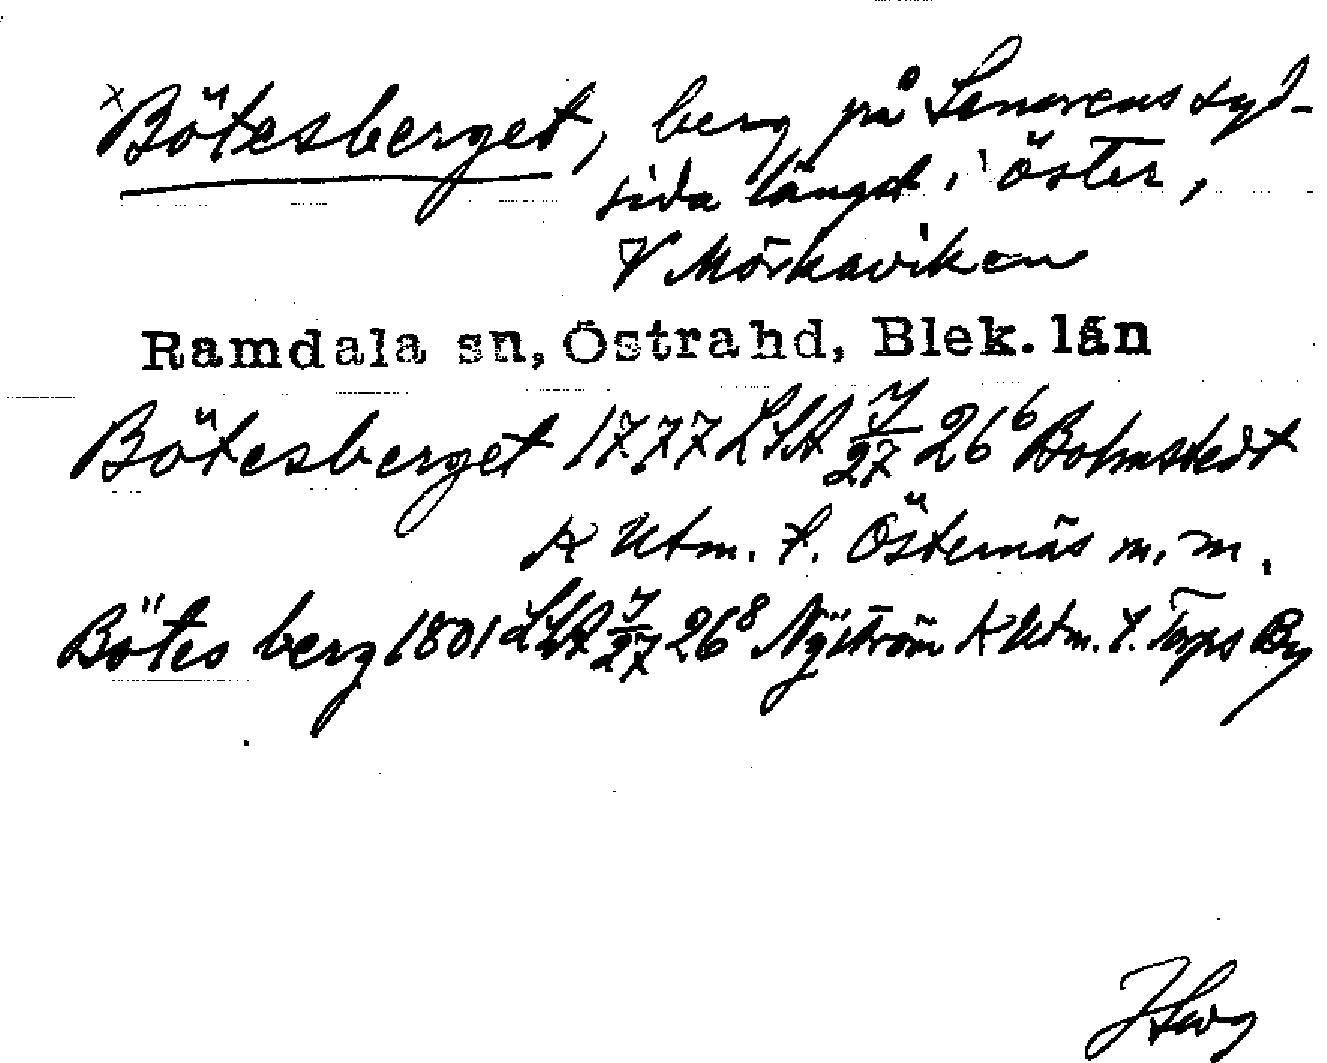 x Bötesberget, berg på Senorens syd-
sida längst i öster,
V Mörkaviken
Ramdala sn, Östrahd, Blek. län
Bötesberget 1777 LSA 7/27 26⁶ Bohmstedt
K Utm. t. Östernäs m.m.
Bötes berg 1801 LSA 7/27 26⁸ Nyström K Utm. t. Torps By